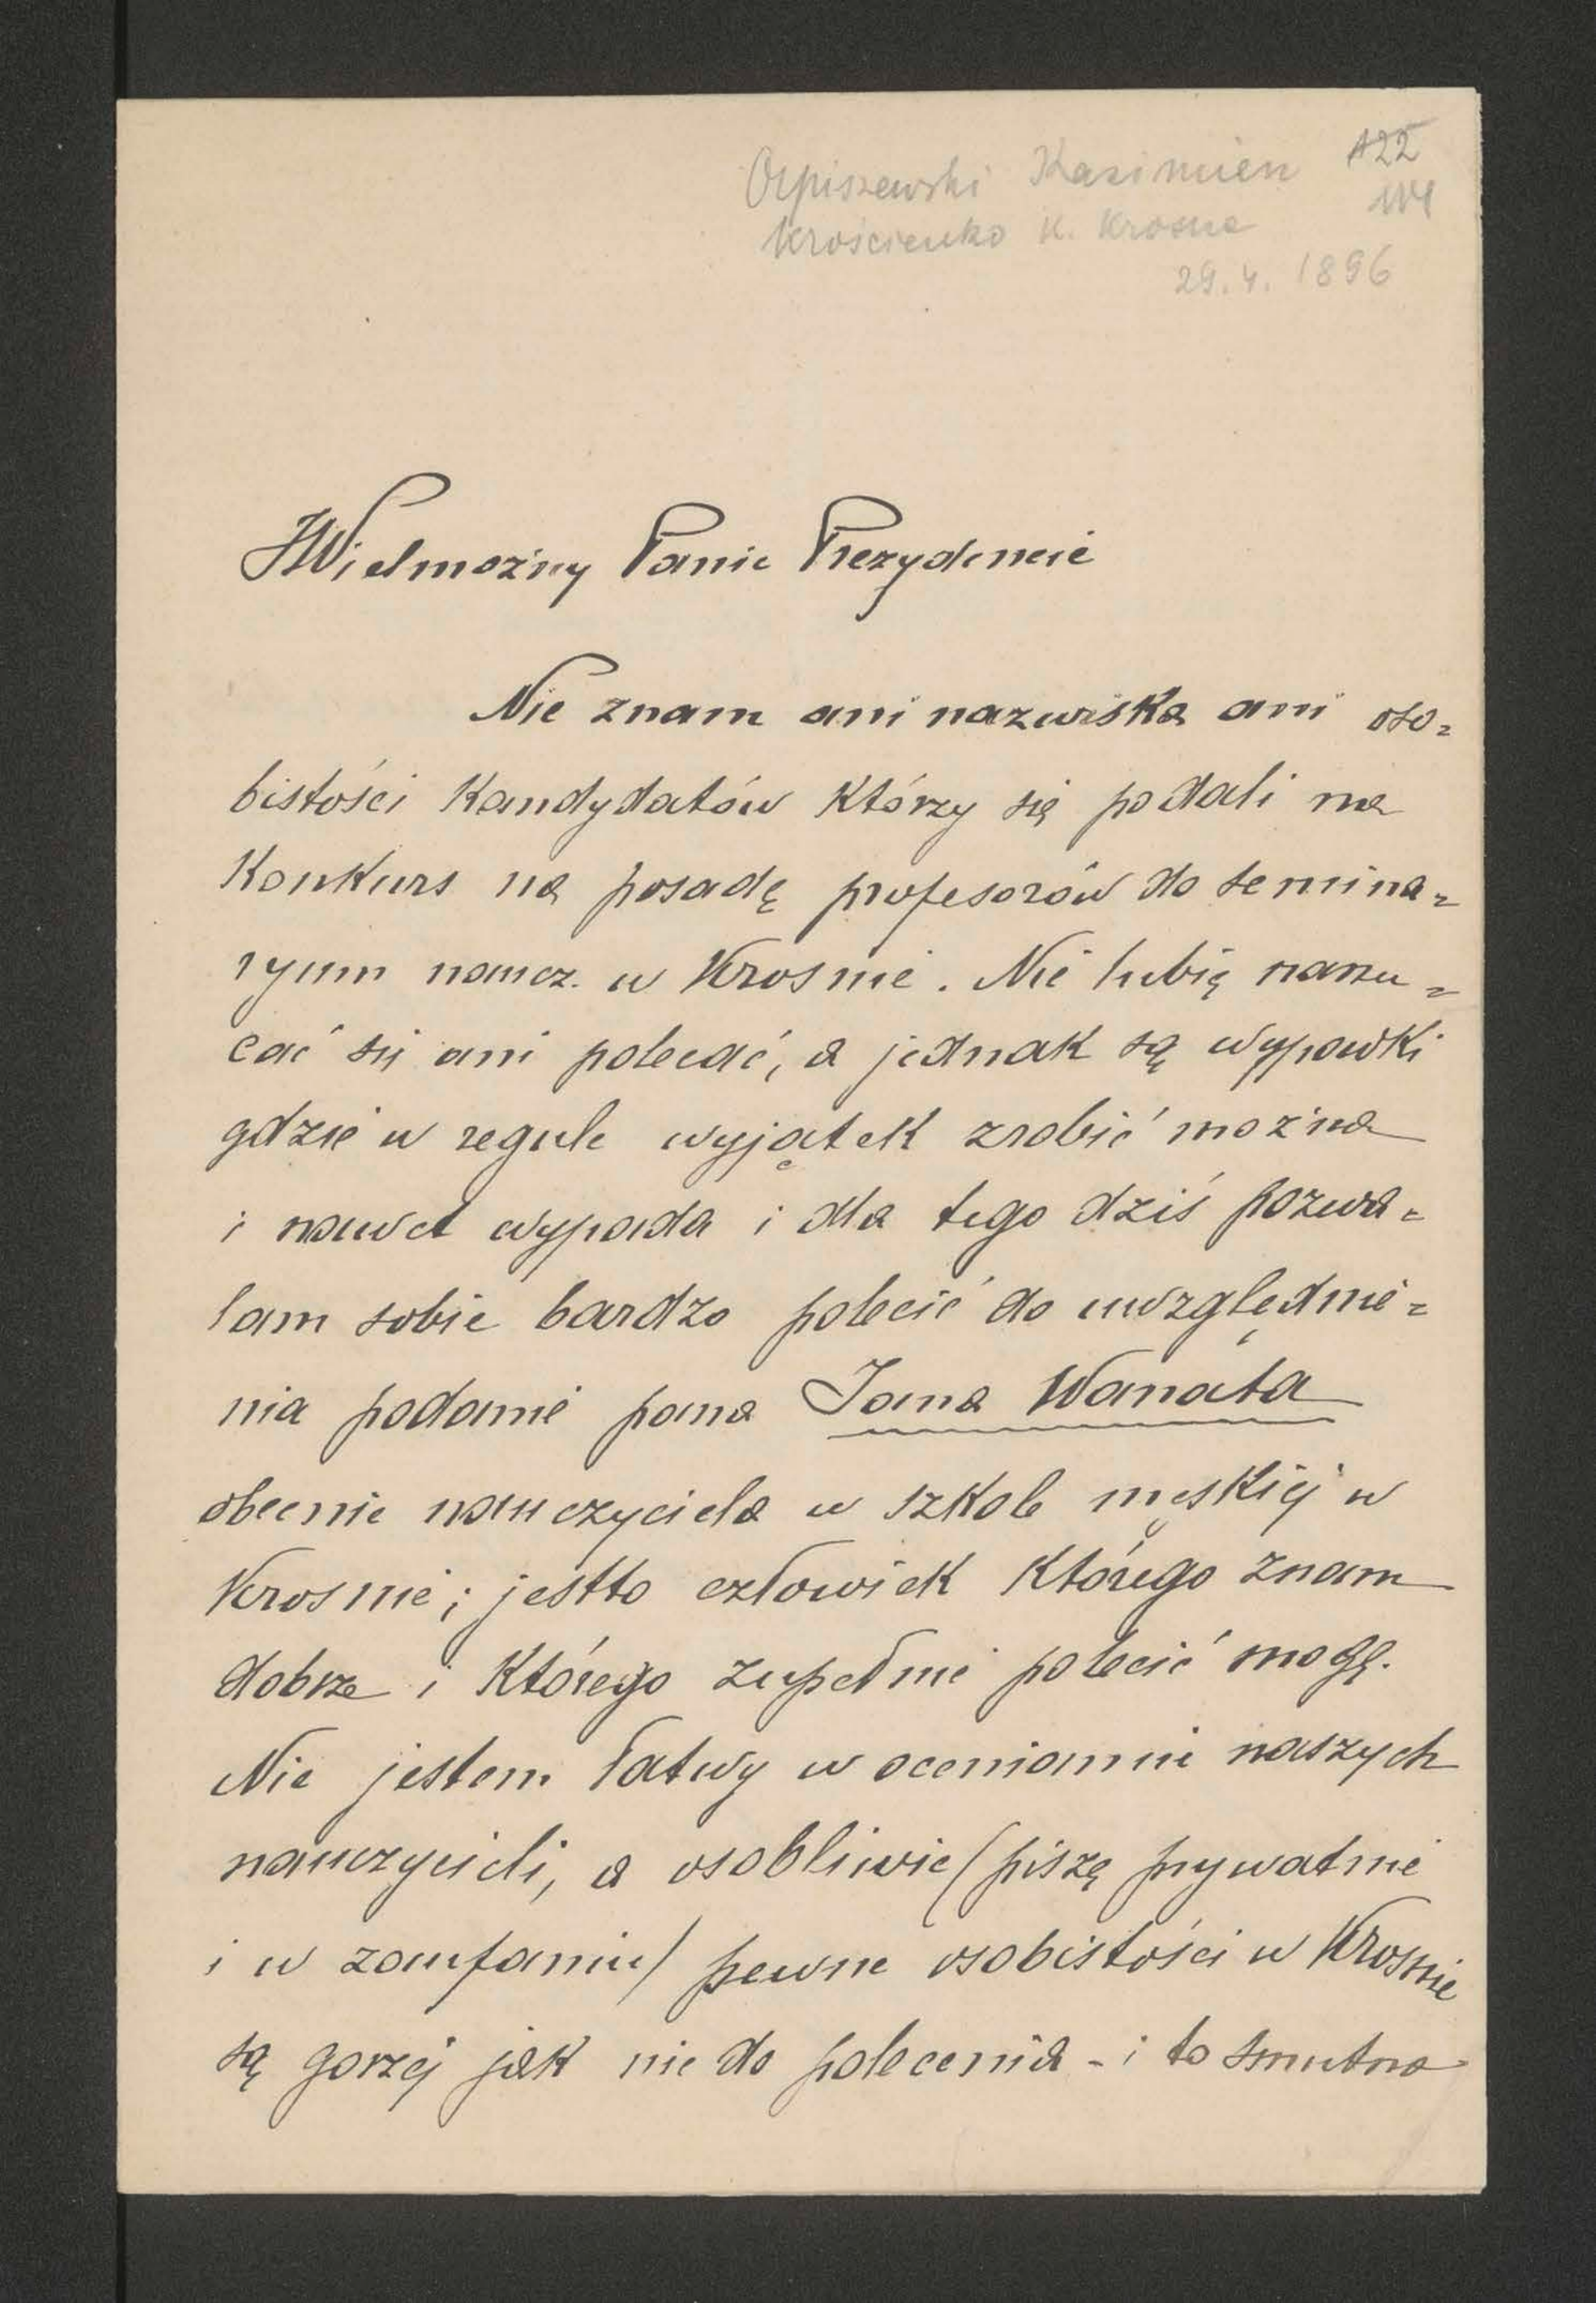 Orpiszewski Kazimierz 122
Krościenko k. Krosna
29.4. 1896
JWielmożny Panie Prezydencie
Nie znam ani nazwiska ani oso=
bistości Kandydatów Którzy się podali na
Konkurs na posadę profesorów do semina=
ryum naucz. w Krosnie. Nie lubię narzu=
cać się ani polecać, a jednak są wypadki
gdzie w regule wyjątek zrobić można
i nawet wypada i dla tego dziś pozwa=
lam sobie bardzo polecić do uwzględnie=
nia podanie pana Jana Wanata
obecnie nauczyciela w szkole męskiej w
Krosnie; jestto człowiek Którego znam
dobrze i Którego zupełnie polecić mogę.
Nie jestem łatwy w ocenianiu naszych
nauczycieli, a osobliwie (piszę prywatnie
i w zaufaniu) pewne osobistości w Krosnie
są gorzej jak nie do polecenia - i to smutno